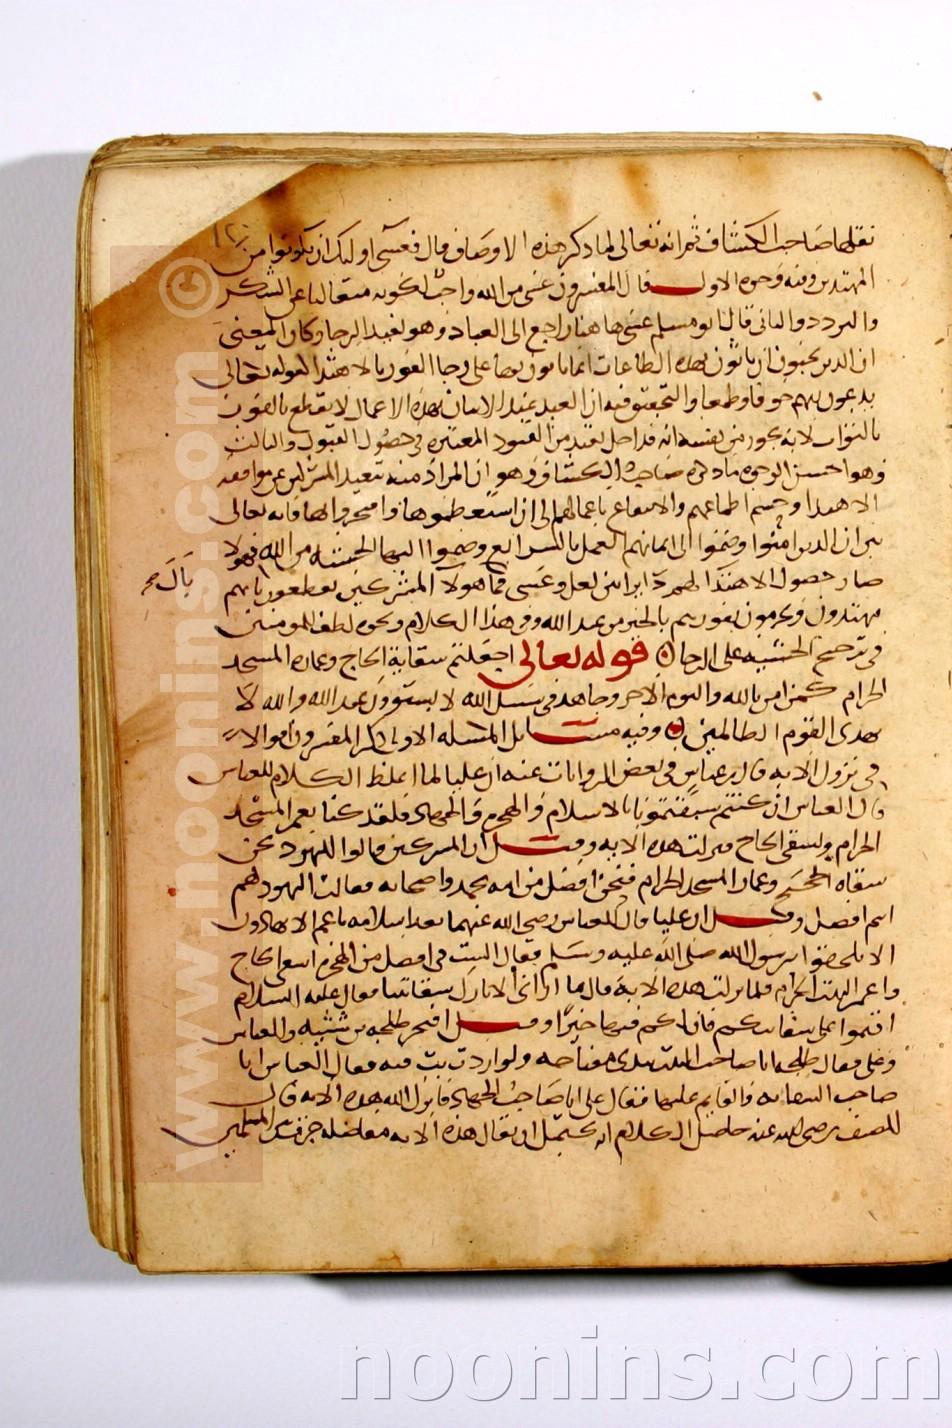 نقلها صاحب الكشاف ثم انه تعالى لما ذكر هذه الاوصاف قال فعسى اوليك ان يكونوا من
المهتدين وفيه وجوه الاول قال المفسرون عسى من الله واجب لكونه متعاليا عن الشك
والتردد والثانى قال ابو مسلم عسى هاهنا راجع الى العباد وهو يفيد الرجا وكان المعنى
ان الذين ياتون بهذه الطاعات انما ياتون بها على رجا الفوز بالاهتدا لقوله تعالى
يدعون ربهم خوفا وطمعا والتحقيق فيه ان العبد عند الاتيان بهذه الاعمال لا يقطع بالفوز
بالثواب لانه يجوز من نفسه انه قد اخل بقيد من القيود المعتبره فى حصول القبول والثالث
وهو احسن الوجوه ما ذكره صاحب الكشاف وهو ان المراد منه تبعيد المشركين عن مواقف
الاهتدا وحسم اطماعهم والانتفاع باعمالهم التى استعظموها وافتخروا بها فانه تعالى
بين ان الذين امنوا وضموا الى ايمانهم العمل بالشرايع وضموا اليها الخشيه من الله فهولا
صار حصول الاهتدا لهم دايرا بين لعل وعسى فما هولا المشركين يقطعون بانهم
بال
مهتدون ويجزمون بفوزهم بالخير من عند الله وفى هذا الكلام ونحوه لطف للمومنين
فى ترجيح الخشيه على الرجا قوله تعالى اجعلتم سقاية الحاج وعماره المسجد
الحرام كمن امن بالله واليوم الاخر وجاهد فى سبيل الله لا يستوون عند الله والله لا
يهدى القوم الظالمين وفيه مسايل المسله الاولى ذكر المفسرون اقوالا
فى نزول الايه قال بن عباس فى بعض الروايات عنه ان عليا لما اغلظ الكلام للعباس
قال العباس ان كنتم سبقتمونا بالاسلام والهجره والجهاد فلقد كنا نعمر المسجد
الحرام ونسقى الحاج فنزلت هذه الايه وقيل ان المشركين قالوا لليهود نحن
سقاه الحجيج وعمار المسجد الحرام فنحن افضل ام محمد واصحابه فقالت اليهود لهم
انتم افضل وقيل ان عليا قال للعباس رضى الله عنهما بعد اسلامه يا عم الا تهاجرون
الا تلحقون برسول الله صلى الله عليه وسلم فقال الست فى افضل من الهجره اسقى الحاج
واعمر البيت الحرام فلما نزلت هذه الايه قال ما ارانى الا تارك سقايتنا فقال عليه السلام
اقيموا على سقايتكم فان لكم فيها خيرا وقيل افتخر طلحه بن شيبه والعباس
وعلى فقال طلحه انا صاحب البيت بيدى مفتاحه ولو اردت بت فيه فقال العباس انا
صاحب السقايه والقايم عليها فقال على انا صاحب الجهاد فانزل الله هذه الايه قال
المصنف رضى الله عنه حاصل الكلام انه يحتمل ان يقال هذه الايه مفاضله جرت بين المسلمين
www.noonins.com ©
noonins.com